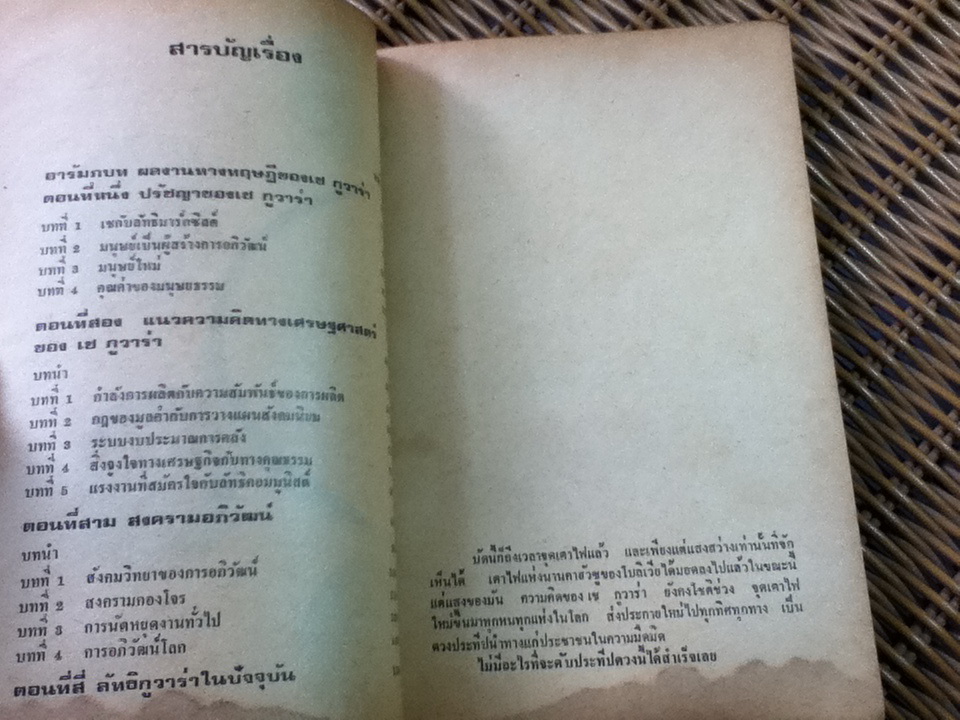 สารบัญเรื่อง
อารัมภบท ผลงานทางทฤษฎีของเช กูวาร่า
ตอนที่หนึ่ง ปรัชญาของเช กูวาร่า
บทที่ 1 เชกับลัทธิมาร์กซิสต์
บทที่ 2 มนุษย์เป็นผู้สร้างการอภิวัฒน์
บทที่ 3 มนุษย์ใหม่
บทที่ 4 คุณค่าของมนุษยธรรม
ตอนที่สอง แนวความคิดทางเศรษฐศาสตร์
ของ เช กูวาร่า
บทนำ
บทที่ 1 กำลังการผลิตกับความสัมพันธ์ของการผลิต
บทที่ 2 กฎของมูลค่ากับการวางแผนสังคมนิยม
บทที่ 3 ระบบงบประมาณการคลัง
บทที่ 4 สิ่งจูงใจทางเศรษฐกิจกับทางคุณธรรม
บทที่ 5 แรงงานที่สมัครใจกับลัทธิคอมมูนิสต์
ตอนที่สาม สงครามอภิวัฒน์
บทนำ
บทที่ 1 สังคมวิทยาของการอภิวัฒน์
บทที่ 2 สงครามกองโจร
บทที่ 3 การนัดหยุดงานทั่วไป
บทที่ 4 การอภิวัฒน์โลก
ตอนที่สี่ ลัทธิกูวาร่าในปัจจุบัน
บัดนี้ก็ถึงเวลาจุดเตาไฟแล้ว และเพียงแต่แสงสว่างเท่านั้นที่จัก
เห็นได้ เตาไฟแห่งนานคาฮัวซูของโบลิเวียได้มอดลงไปแล้วในขณะนี้
แต่แสงของมัน ความคิดของ เช กูวาร่า ยังคงโชติช่วง จุดเตาไฟ
ใหม่ขึ้นมาทุกหนทุกแห่งในโลก ส่งประกายใหม่ไปทุกทิศทุกทาง เป็น
ดวงประทีปนำทางแก่ประชาชนในความมืดมิด
ไม่มีอะไรที่จะดับประทีปดวงนี้ได้สำเร็จเลย